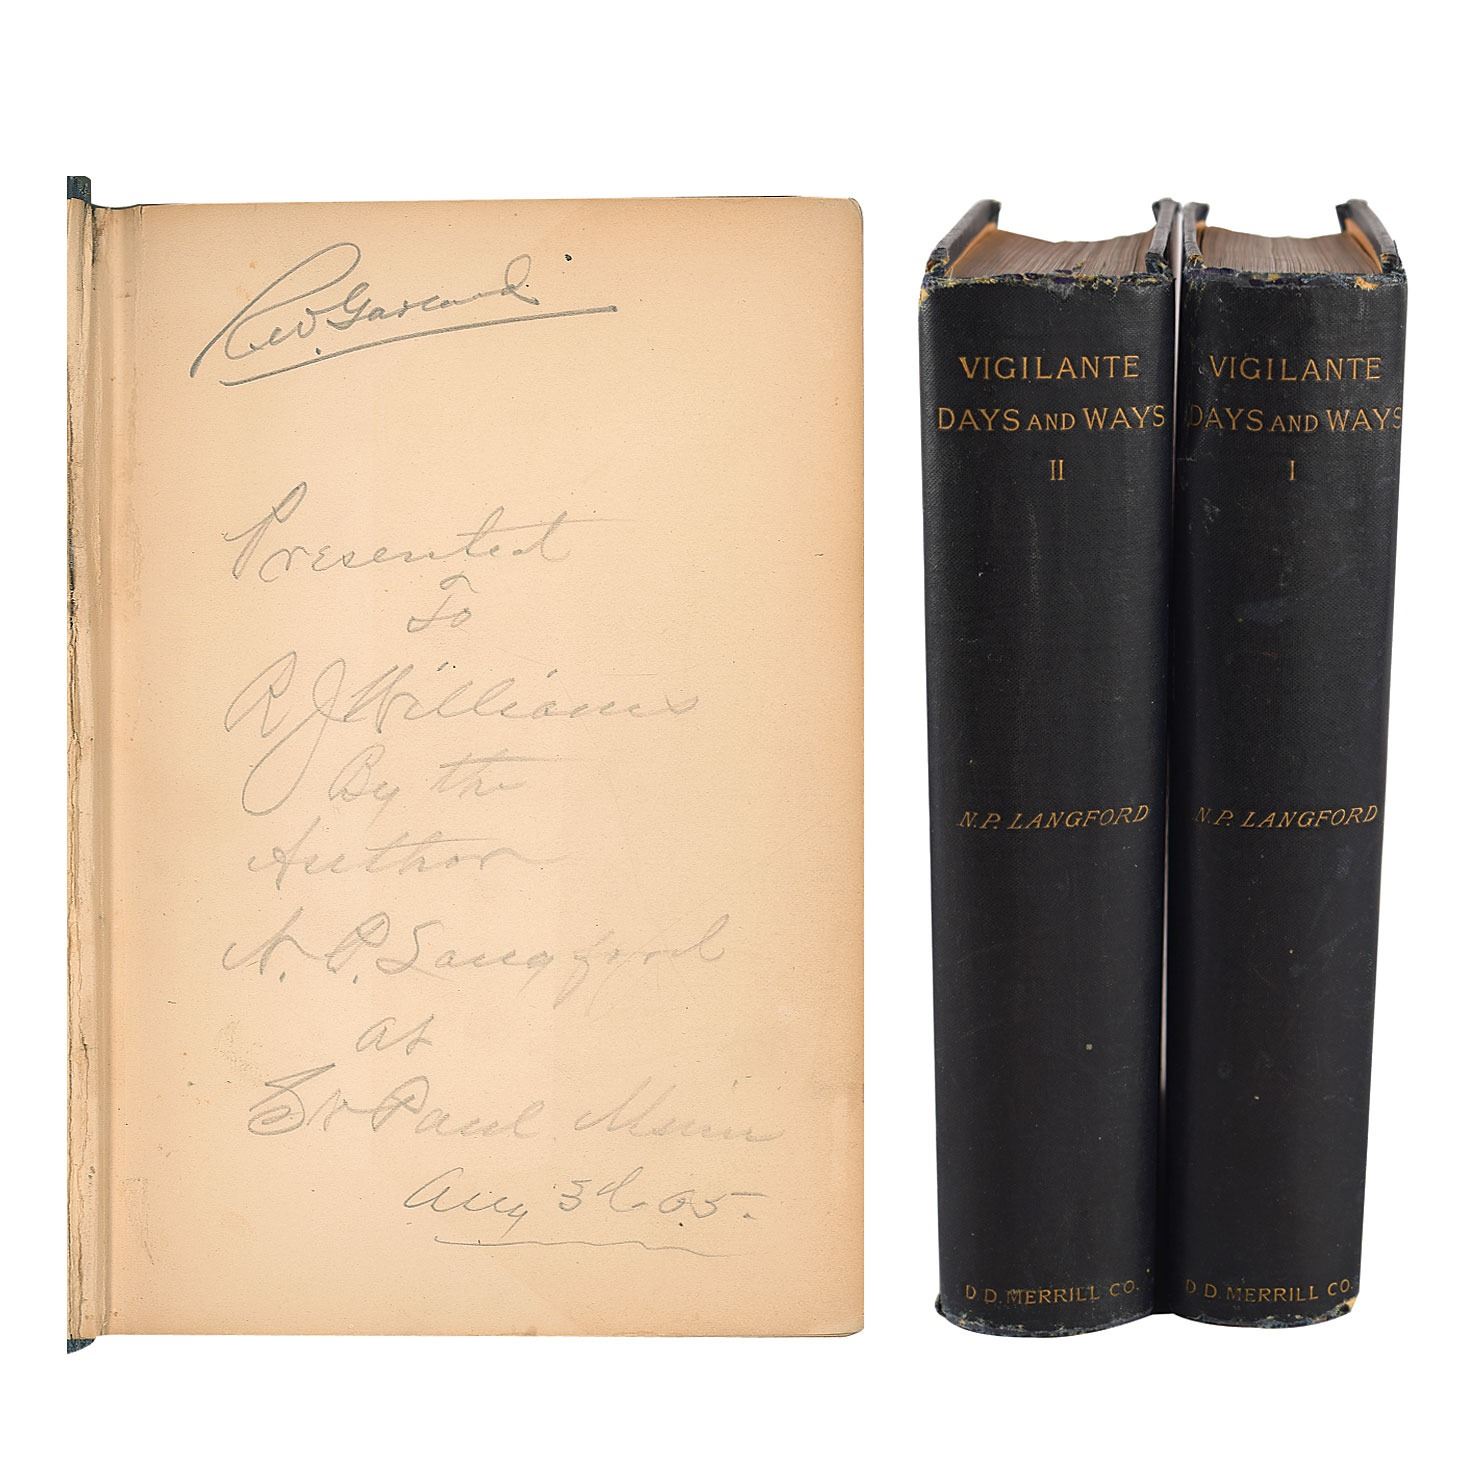 Presented
To
R J Williams
By the
Author
N. P. Langford
at
St Paul Minn
Aug 05.
VIGILANTE
DAYS AND WAYS
II
N.P. LANGFORD
D. D. MERRILL CO.
VIGILANTE
DAYS AND WAYS
I
N.P. LANGFORD
D. D. MERRILL CO.